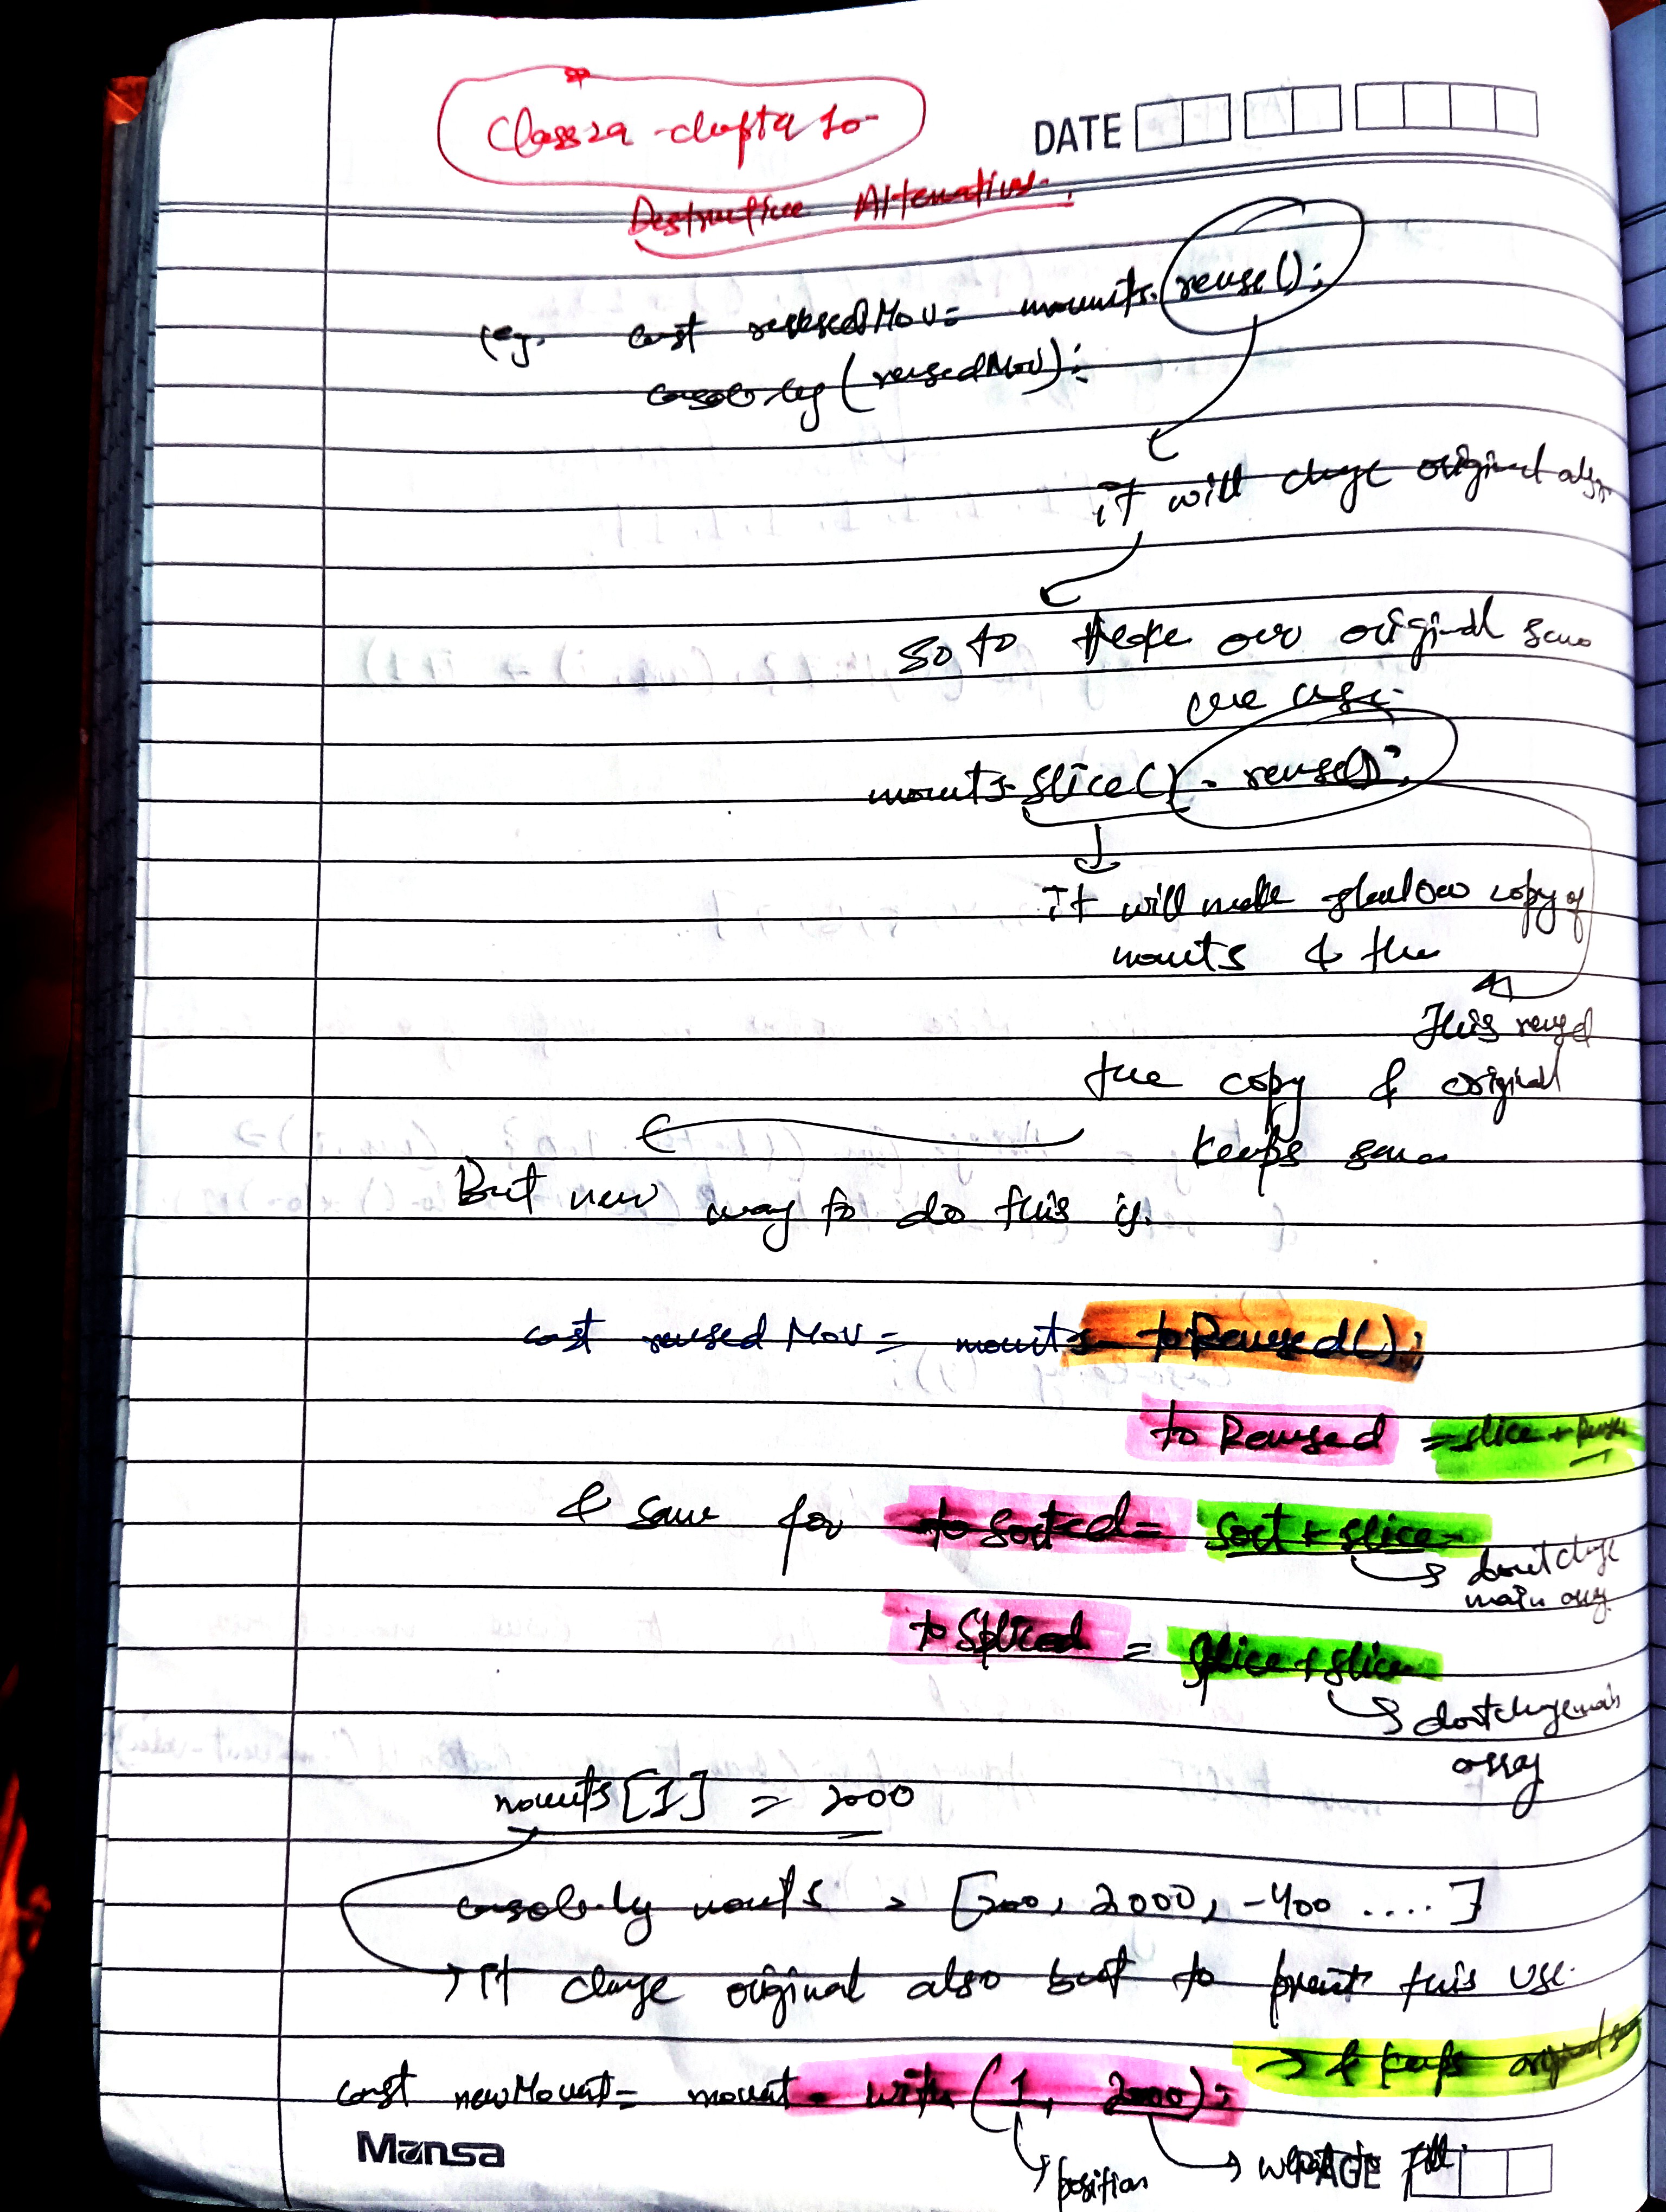 DATE
Destructive Alternative.
(eg. const reversedMov = movmnts.reverse();
console.log(reversedMov);
it will change original also
So to keep our original same
we use.
movmnts.slice().reverse();
it will make shallow copy of
movmnts & the
This reversed
the copy & original
keeps same
But new way to do this is.
const reversedMov = movmnts.toReversed();
to Reversed = slice + Reverse
& same for to Sorted = Sort + slice
don't change
main array
to Spliced = Splice + slice
don't change main
array
movmnts[1] = 2000
console.log movmnts = [200, 2000, -400 ....]
→ It change original also but to prevent this use.
const newMovmnt = movmnt.with(1, 2000); → & keeps original same
position
Mansa
PAGE